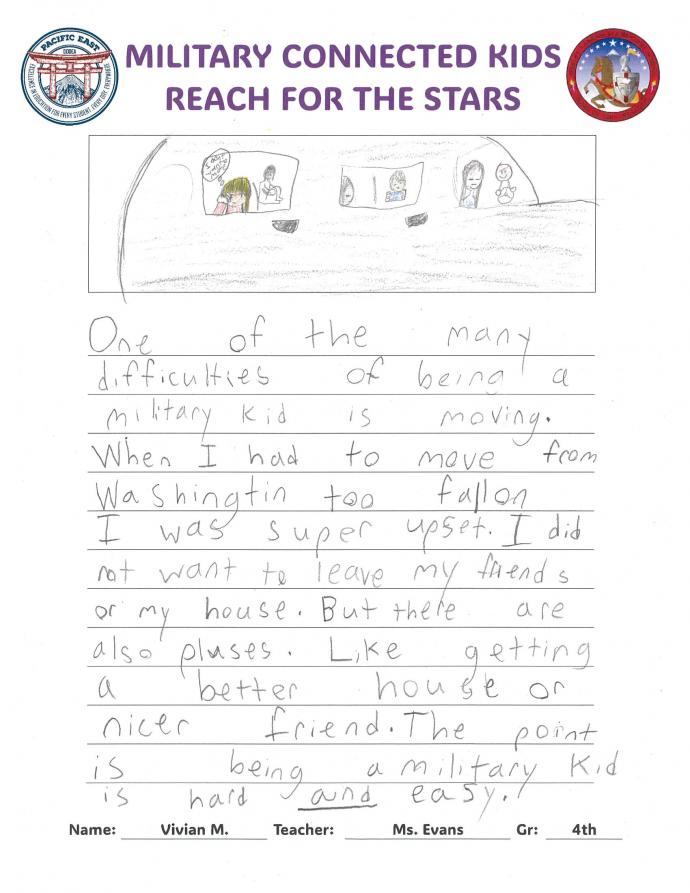 PACIFIC EAST
DODEA
EXCELLENCE IN EDUCATION FOR EVERY STUDENT, EVERY DAY, EVERYWHERE
MILITARY CONNECTED KIDS
REACH FOR THE STARS
One of the many
difficulties of being a
military kid is moving.
When I had to move from
Washingtin too fallon
I was super upset. I did
not want to leave my friends
or my house. But there are
also pluses. Like getting
a better house or
nicer friend. The point
is being a military kid
is hard and easy.
Name: Vivian M. Teacher: Ms. Evans Gr: 4th